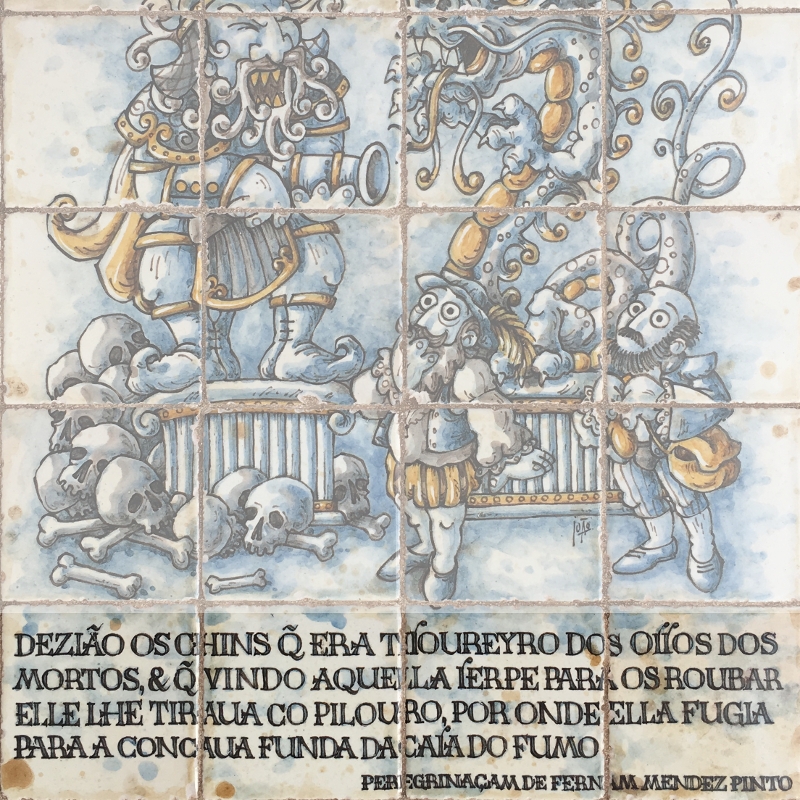 DEZIÃO OS CHINS Q̃ ERA TſOUREYRO DOS OſſOS DOS
MORTOS, & Q̃ VINDO AQUELLA ſERPE PARA OS ROUBAR
ELLE LHE TIRAUA CO PILOURO, POR ONDE ELLA FUGIA
PARA A CONCAUA FUNDA DA CAſA DO FUMO
PEREGRINAÇAM DE FERNAM MENDEZ PINTO